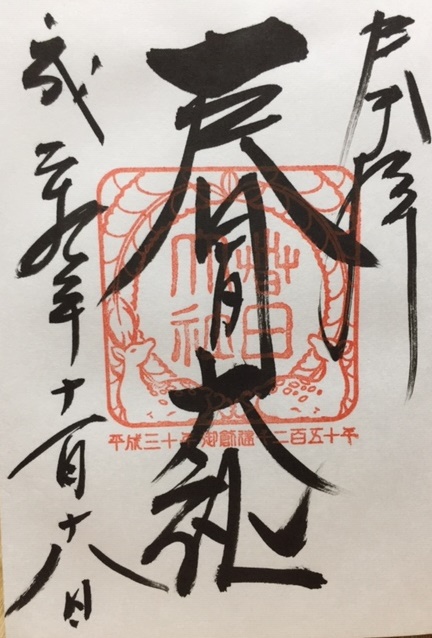 奉拝
春日大社
春日
大社
平成三十年 御創建千二百五十年
平成二十九年十一月十八日